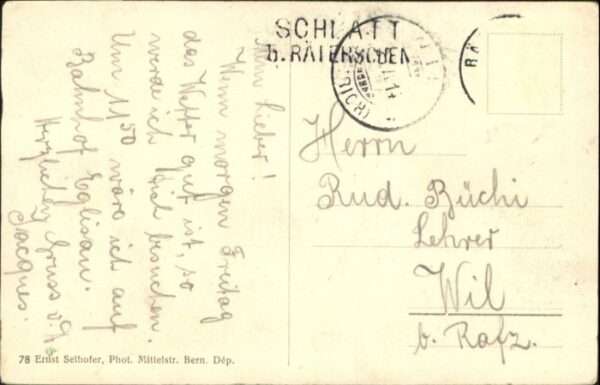 SCHLATT
b. RÄTERSCHEN
Mein Lieber!
Wenn morgen Freitag
das Wetter gut ist, so
werde ich Dich besuchen.
Um 11 50 wäre ich auf
Bahnhof Eglisau.
Herzlichen Gruss v.
Jacques.
Herrn
Rud. Büchi
Lehrer
Wil
b. Rafz.
78 Ernst Selhofer, Phot. Mittelstr. Bern. Dép.